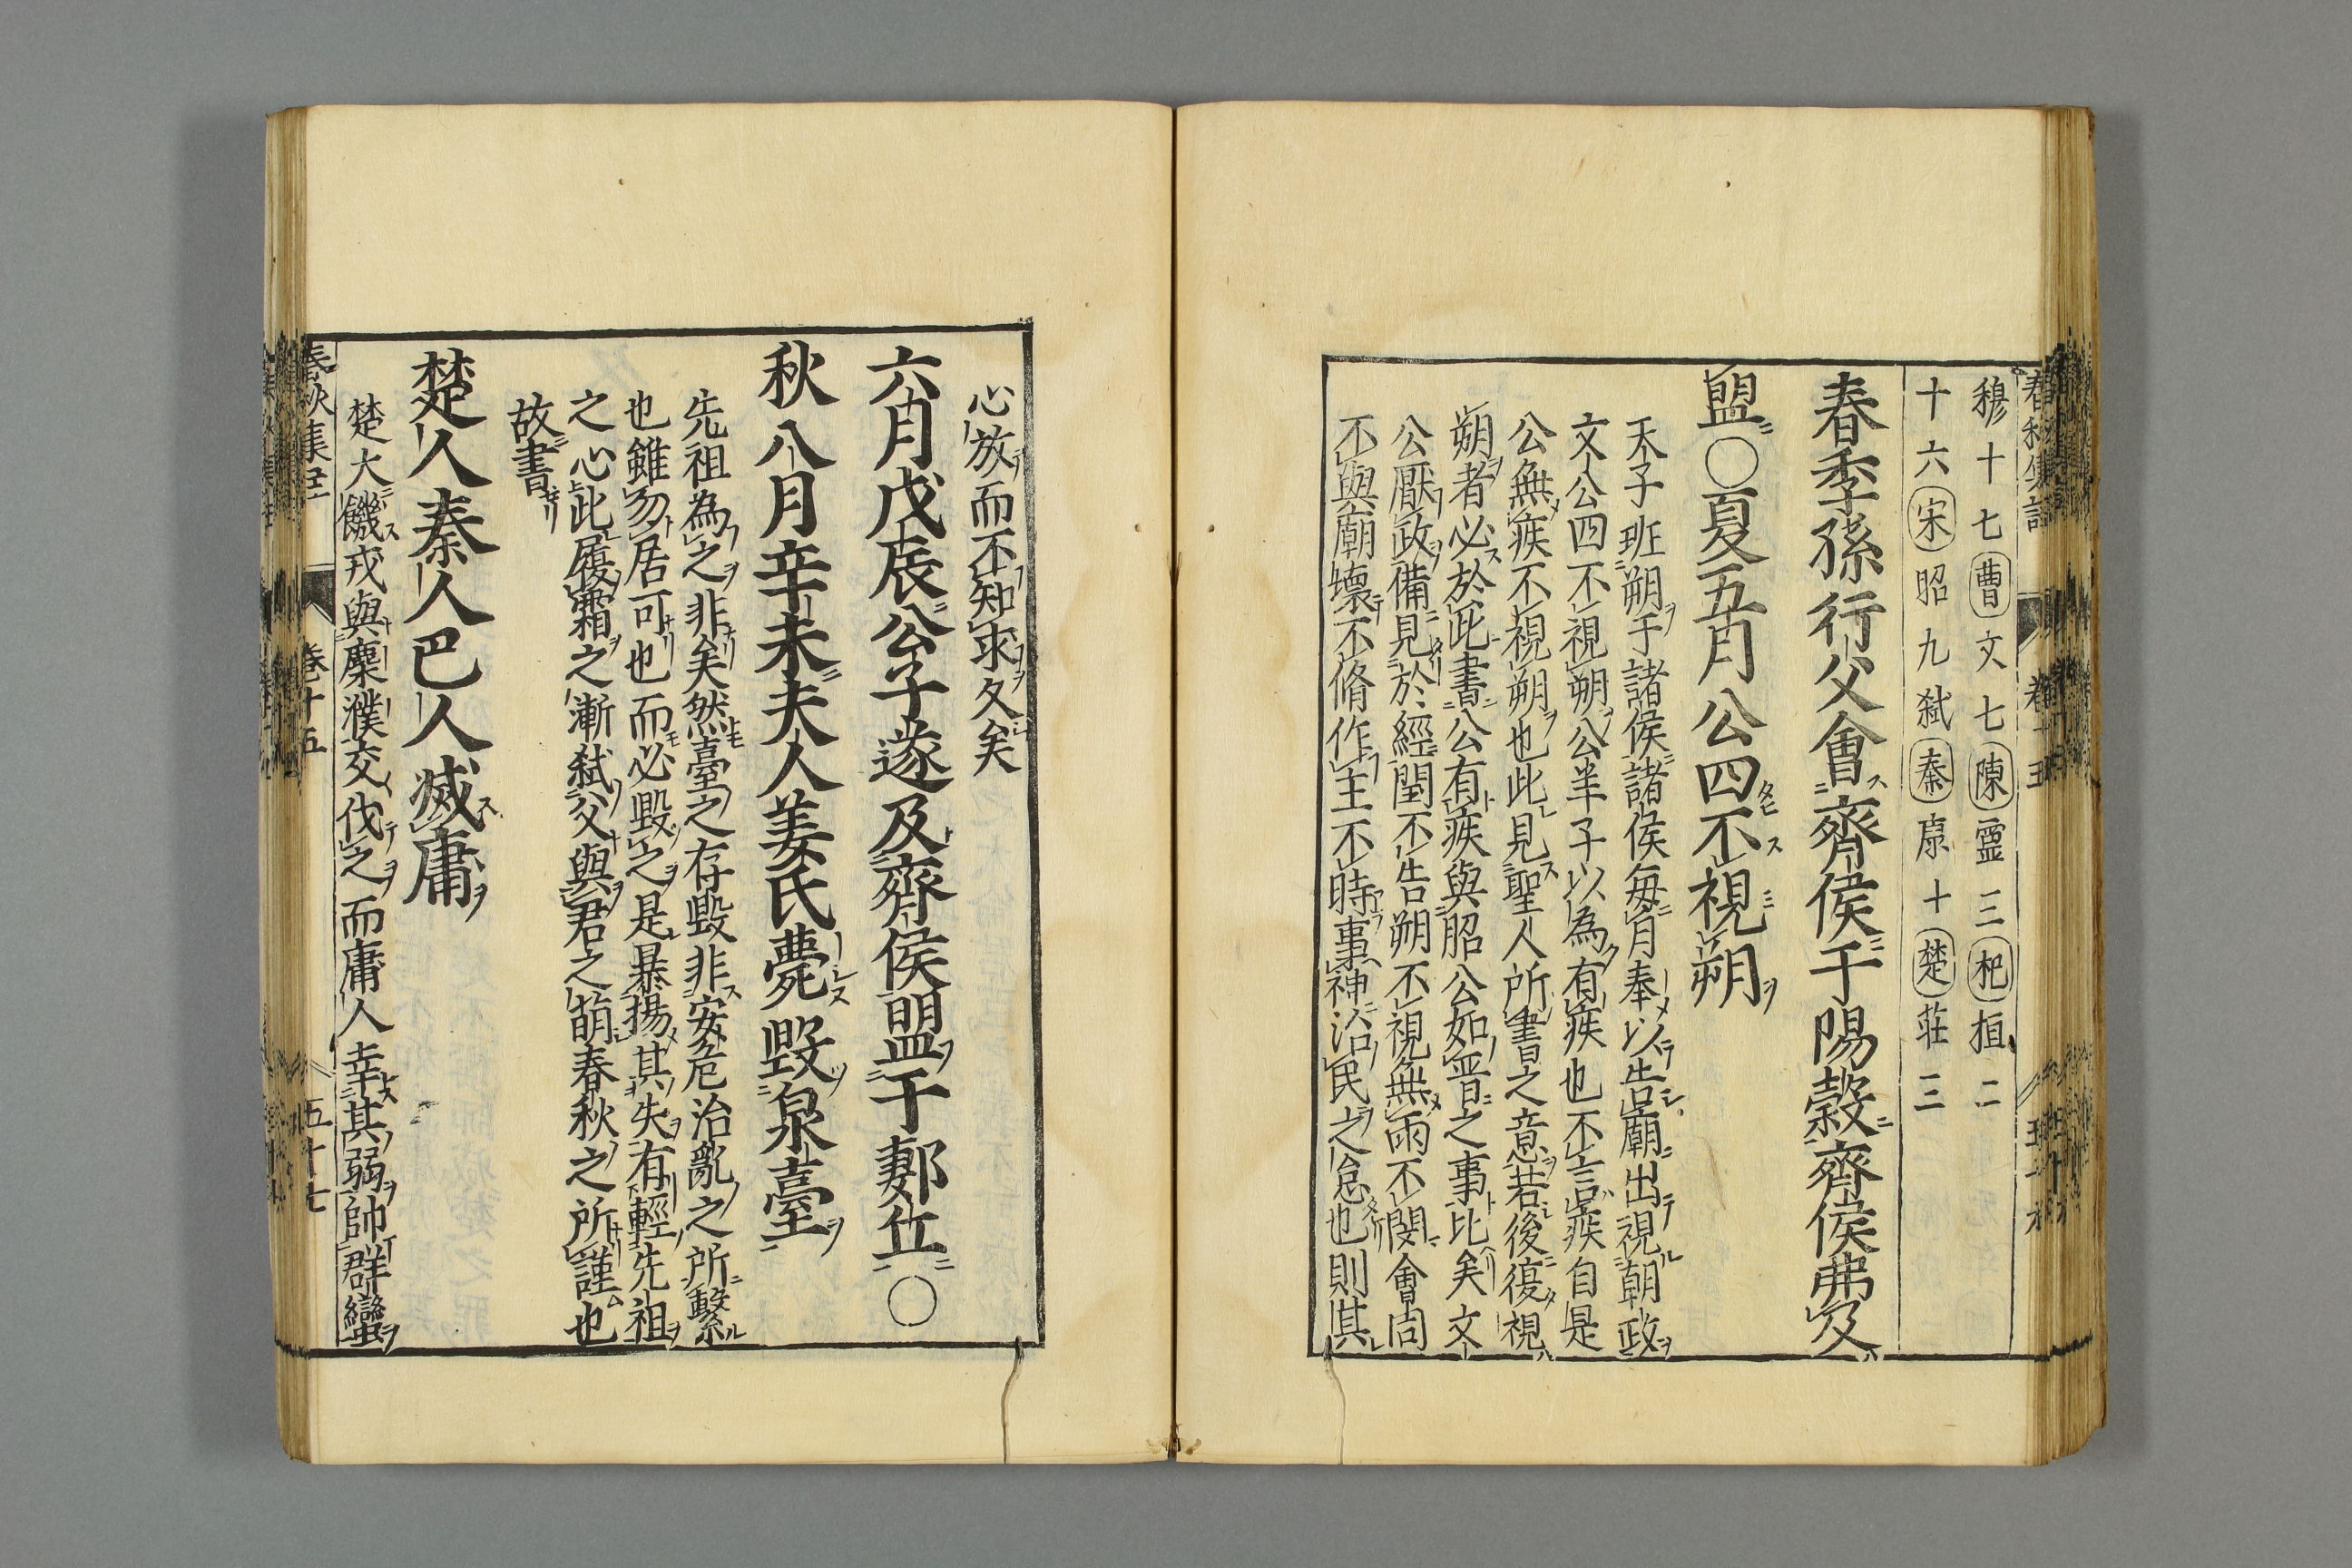 穆十七曹文七陳靈三杞桓二
十六宋昭九弑秦康十楚莊三
春季孫行父會齊侯于陽穀齊侯弗及
盟○夏五月公四不視朔
天子班朔于諸侯諸侯每月奉以告廟出視朝政
文公四不視朔公羊子以為有疾也不言疾自是
公無疾不視朔也此見聖人所書之意若後復視
朔者必於此書公有疾與昭公如晉之事比矣文
公厭政備見於經閏不告朔不視無雨不閔會同
不與廟壞不脩作主不時事神治民之怠也則其
心放而不知求久矣
六月戊辰公子遂及齊侯盟于郪丘○
秋八月辛未夫人姜氏薨毀泉臺
先祖為之非矣然臺之存毀非安危治亂之所繫
也雖勿居可也而必毀之是暴揚其失有輕先祖
之心此履霜之漸弑父與君之萌春秋之所謹也
故書
楚人秦人巴人滅庸
楚大饑戎與麇濮交伐之而庸人幸其弱帥群蠻
春秋集註 卷十五 五十七